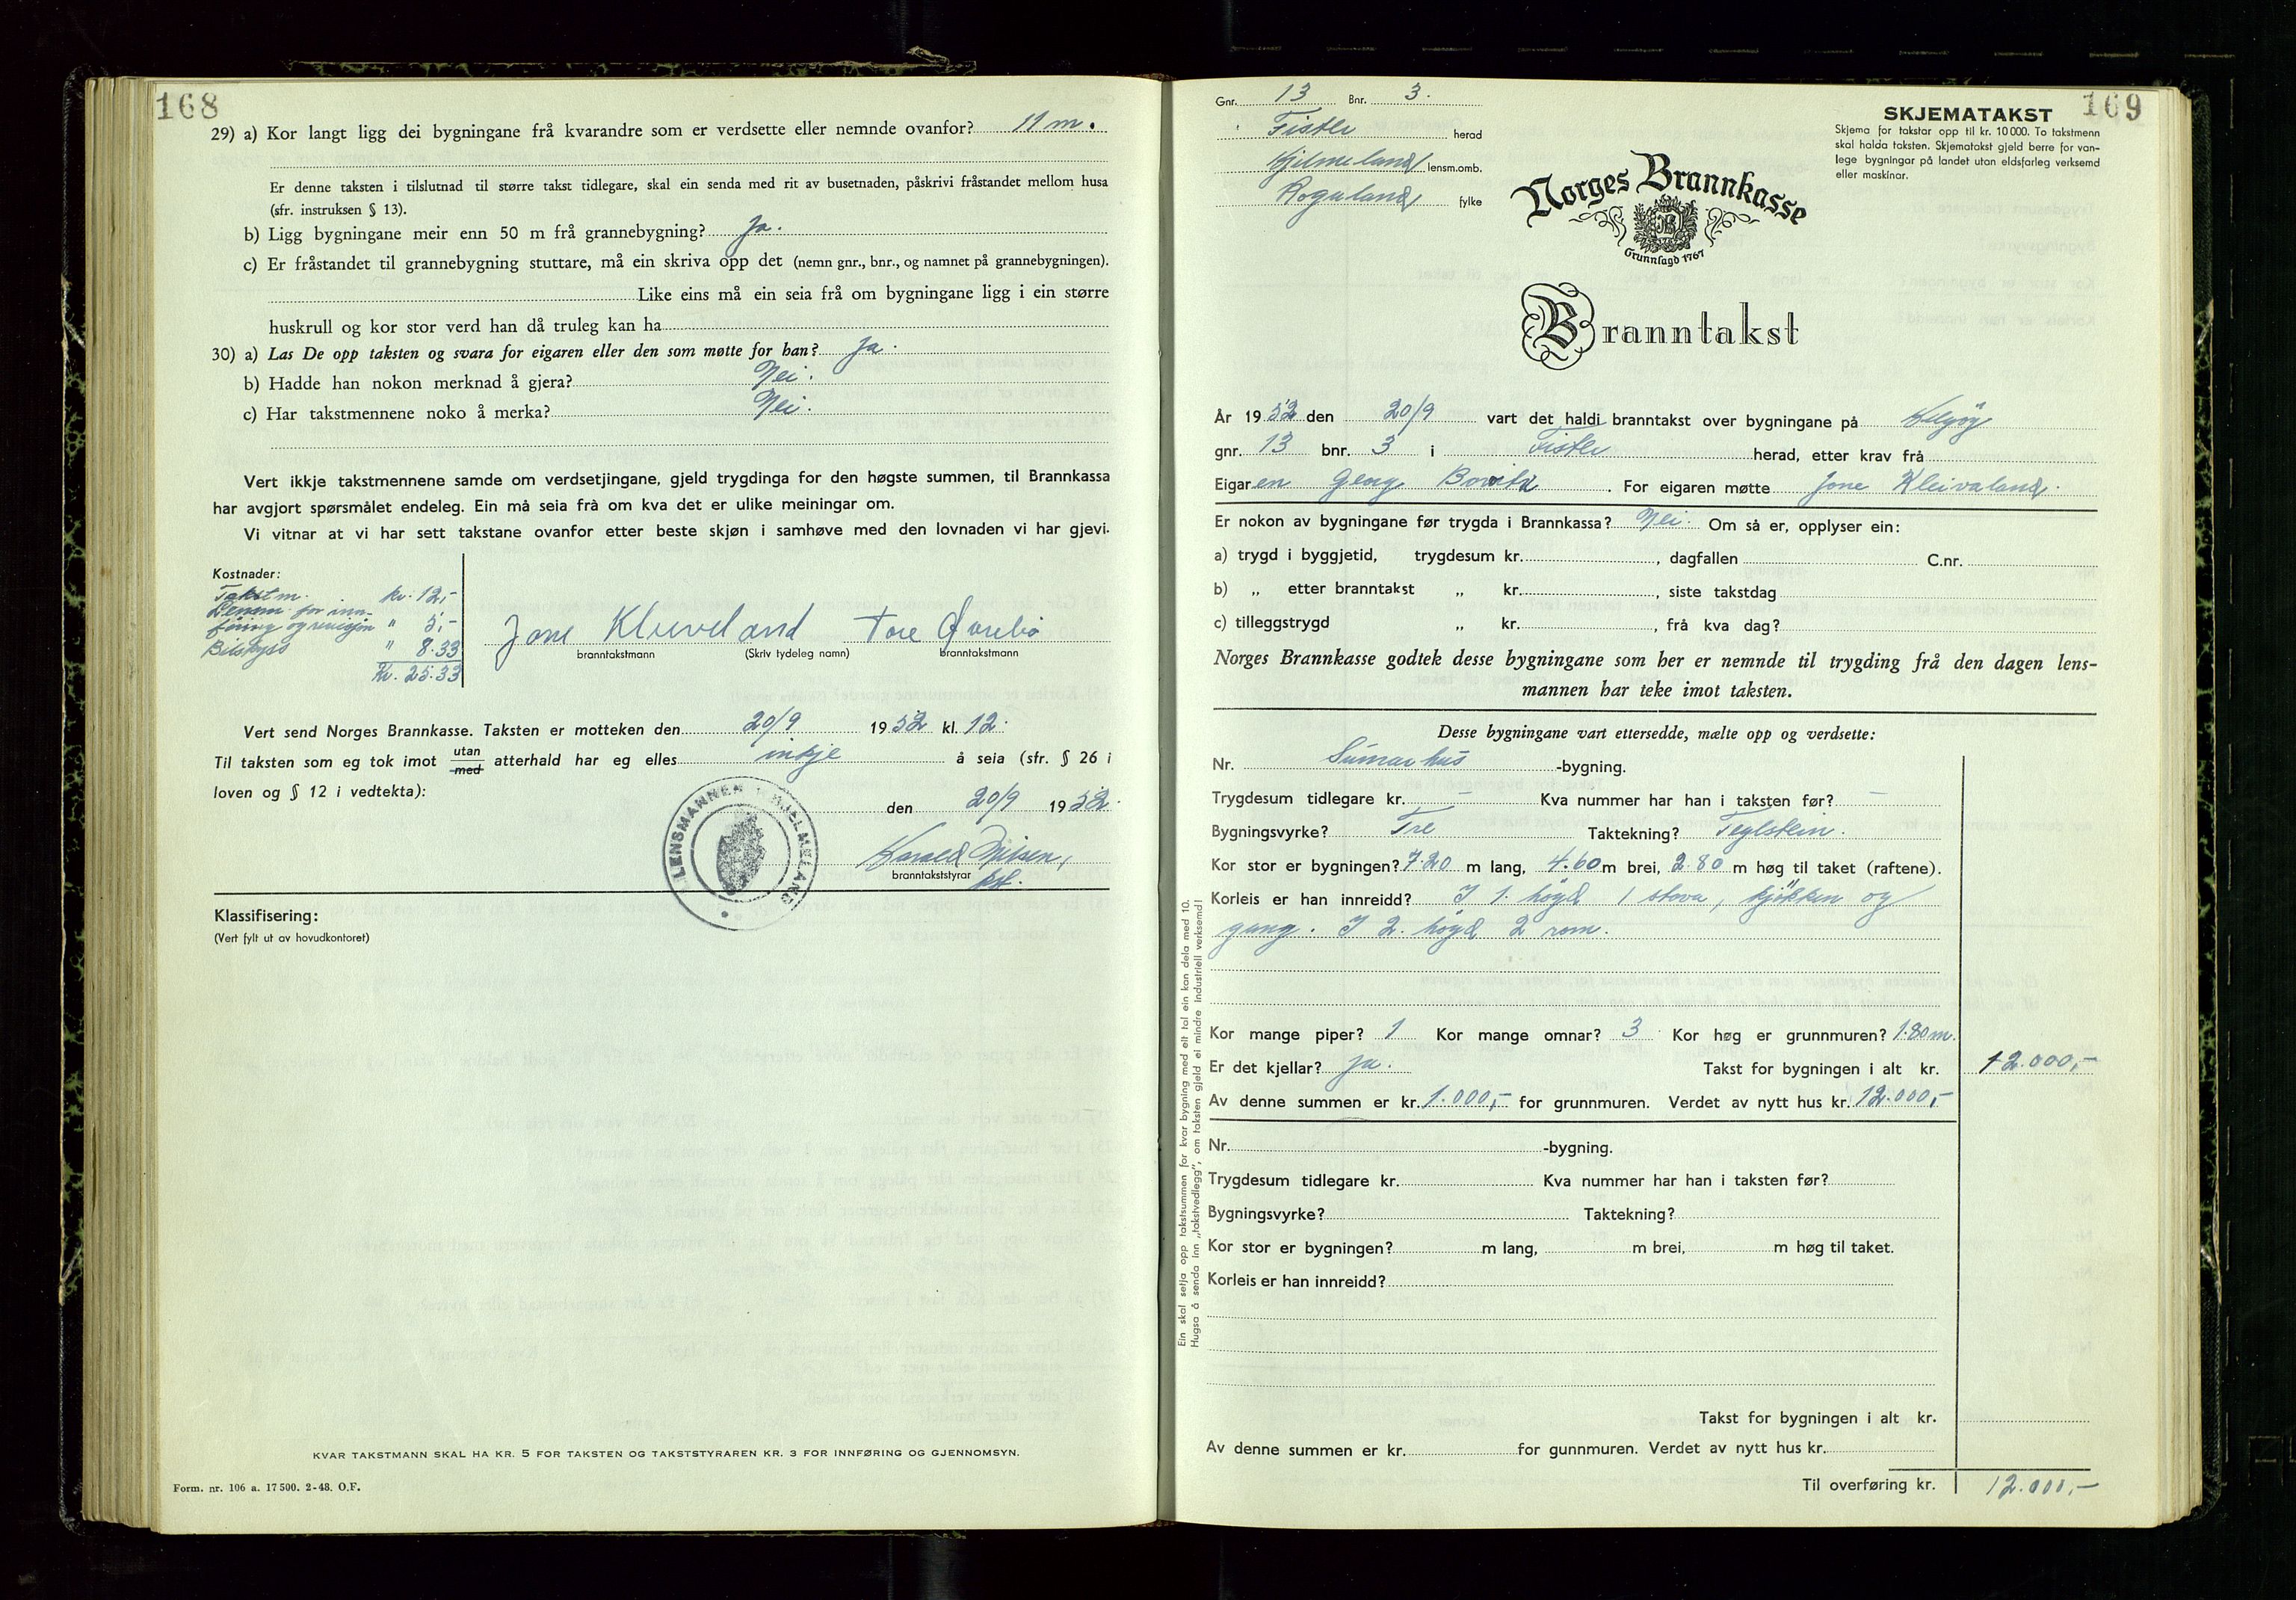 168
29) a) Kor langt ligg dei bygningane frå kvarandre som er verdsette eller nemnde ovanfor? 11 m.
Er denne taksten i tilslutnad til større takst tidlegare, skal ein senda med rit av busetnaden, påskrivi fråstandet mellom husa
(sfr. instruksen § 13).
b) Ligg bygningane meir enn 50 m frå grannebygning? Ja.
c) Er fråstandet til grannebygning stuttare, må ein skriva opp det (nemn gnr., bnr., og namnet på grannebygningen).
Like eins må ein seia frå om bygningane ligg i ein større
huskrull og kor stor verd han då truleg kan ha
30) a) Las De opp taksten og svara for eigaren eller den som møtte for han? Ja.
b) Hadde han nokon merknad å gjera? Nei.
c) Har takstmennene noko å merka? Nei.
Vert ikkje takstmennene samde om verdsetjingane, gjeld trygdinga for den høgste summen, til Brannkassa
har avgjort spørsmålet endeleg. Ein må seia frà om kva det er ulike meiningar om.
Vi vitnar at vi har sett takstane ovanfor etter beste skjøn i samhøve med den lovnaden vi har gjevi.
Kostnader:
Takstm. kr. 12,-
Lensm. for inn-
føring og revisjon " 5,-
Bilskyss " 8.33
Kr. 25.33
Jone Kleveland Tore
branntakstmann (Skriv tydeleg namn) branntakstmann
Vert send Norges Brannkasse. Taksten er motteken den 20/9 1952 kl. 12.
Til taksten som eg tok imot utan/med atterhald har eg elles inkje å seia (sfr. § 26 i
loven og § 12 i vedtekta):
den 20/9 1952.
LENSMANNEN I HJELMELAND
Harald Nilsen,
branntakststyrar kst.
Klassifisering:
(Vert fylt ut av hovudkontoret)
KVAR TAKSTMANN SKAL HA KR. 5 FOR TAKSTEN OG TAKSTSTYRAREN KR. 3 FOR INNFØRING OG GJENNOMSYN.
Form. nr. 106 a. 17 500. 2-48. O.F.
169
Gnr. 13 Bnr. 3.
Fister herad
Hjelmeland lensm.omb.
Rogaland fylke
SKJEMATAKST
Skjema for takstar opp til kr. 10 000. To takstmenn
skal halda taksten. Skjematakst gjeld berre for van-
lege bygningar på landet utan eldsfarleg verksemd
eller maskinar.
Norges Brannkasse
Grunnlagd 1767
Branntakst
År 1952 den 20/9 vart det haldi branntakst over bygningane på Helgøy
gnr. 13 bnr. 3 i Fister herad, etter krav frå
Eigaren Georg. For eigaren møtte Jone Kleivaland.
Er nokon av bygningane før trygda i Brannkassa? Nei. Om så er, opplyser ein:
a) trygd i byggjetid, trygdesum kr. , dagfallen C.nr.
b) „ etter branntakst „ kr. , siste takstdag
c) tilleggstrygd „ kr. , frå kva dag?
Norges Brannkasse godtek desse bygningane som her er nemnde til trygding frå den dagen lens-
mannen har teke imot taksten.
Desse bygningane vart ettersedde, mælte opp og verdsette:
Nr. Sumarhus -bygning.
Trygdesum tidlegare kr. – Kva nummer har han i taksten før? –
Bygningsvyrke? Tre Taktekning? Teglstein.
Kor stor er bygningen? 7.20 m lang, 4.60 m brei, 2.80 m høg til taket (raftene).
Korleis er han innreidd? I 1. høgd 1 stova, kjøkken og
gang. I 2. høgd 2 rom.
Kor mange piper? 1 Kor mange omnar? 3 Kor høg er grunnmuren? 1.80 m.
Er det kjellar? Ja. Takst for bygningen i alt kr. 12.000,-
Av denne summen er kr. 1.000,- for grunnmuren. Verdet av nytt hus kr. 12.000,-
Nr. -bygning.
Trygdesum tidlegare kr. Kva nummer har han i taksten før?
Bygningsvyrke? Taktekning?
Kor stor er bygningen? m lang, m brei, m høg til taket.
Korleis er han innreidd?
Takst for bygningen i alt kr.
Av denne summen er kr. for gunnmuren. Verdet av nytt hus kr.
Til overføring kr. 12.000,-
Ein skal setja opp takstsummen for kvar bygning med eit tal ein kan dela med 10.
Hugsa å senda inn „takstvedlegg", om taksten gjeld ei mindre industriell verksemd!